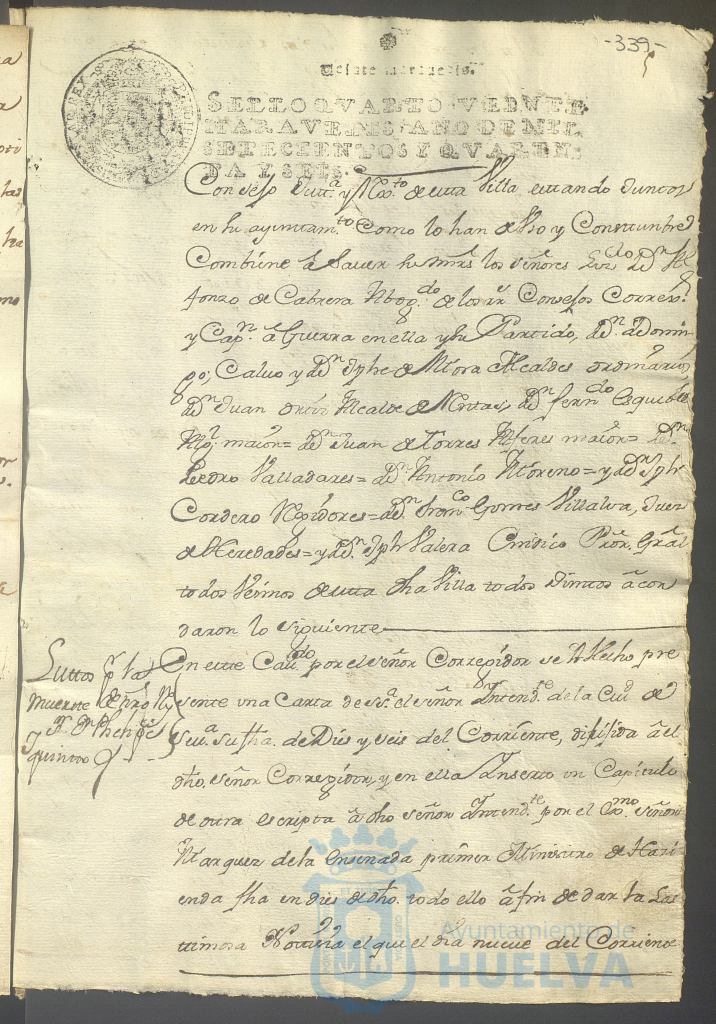 -339-
Veinte maravedis.
SELLO QVARTO, VEINTE
MARAVEDIS, AÑO DE MIL
SETECIENTOS Y QVAREN-
TA Y SEIS.
Consejo Justª y Rexto de esta Villa estando Juntos
en su ayuntamto Como lo han de Vso y Constunbre
Combiene â Saver sus mrds los señores Lizdo Dn Al
fonzo de Cabrera Abogdo de los rs Consejos Correxr
y Capn â Guerra en ella y su Partido, Dn Domin
go Calvo y Dn Jphe de Mora Alcaldes ordinarios
Dn Juan Alcalde de Mestas, Dn ferndo Esquibel
Algl maior= Dn Juan de Torres Alferes maior= Dn
Pedro Valladares= Dn Antonio Moreno= y Dn Jph
Cordero Rexidores= Dn Franco Gomes Villalva, Juez
de Heredades= y Dn Jph Valera Sindico Pror Gral
todos Vesinos de esta dha Villa todos Juntos âcor
daron lo siguiente
Luttos pr la
muerte de nro Rey
Sr Dn Phelipe
quinto
En este Cavdo por el señor Correxidor se â Hecho pre
sente vna Carta de el señor Intendte de la Ciud de
Sevª su fha de Dies y seis del Corriente, dirijida â el
dho señor Correxidor, y en ella Inserto un Capitulo
de otra escripta â dho señor Intendte por el Exmo señor
Marquez de la ensenada primer Ministro de Hazi
enda fha en dies de dho todo ello â fin de dar la Las
timosa Noticia el que el dia nueve del Corriente
Ayuntamiento de
HUELVA